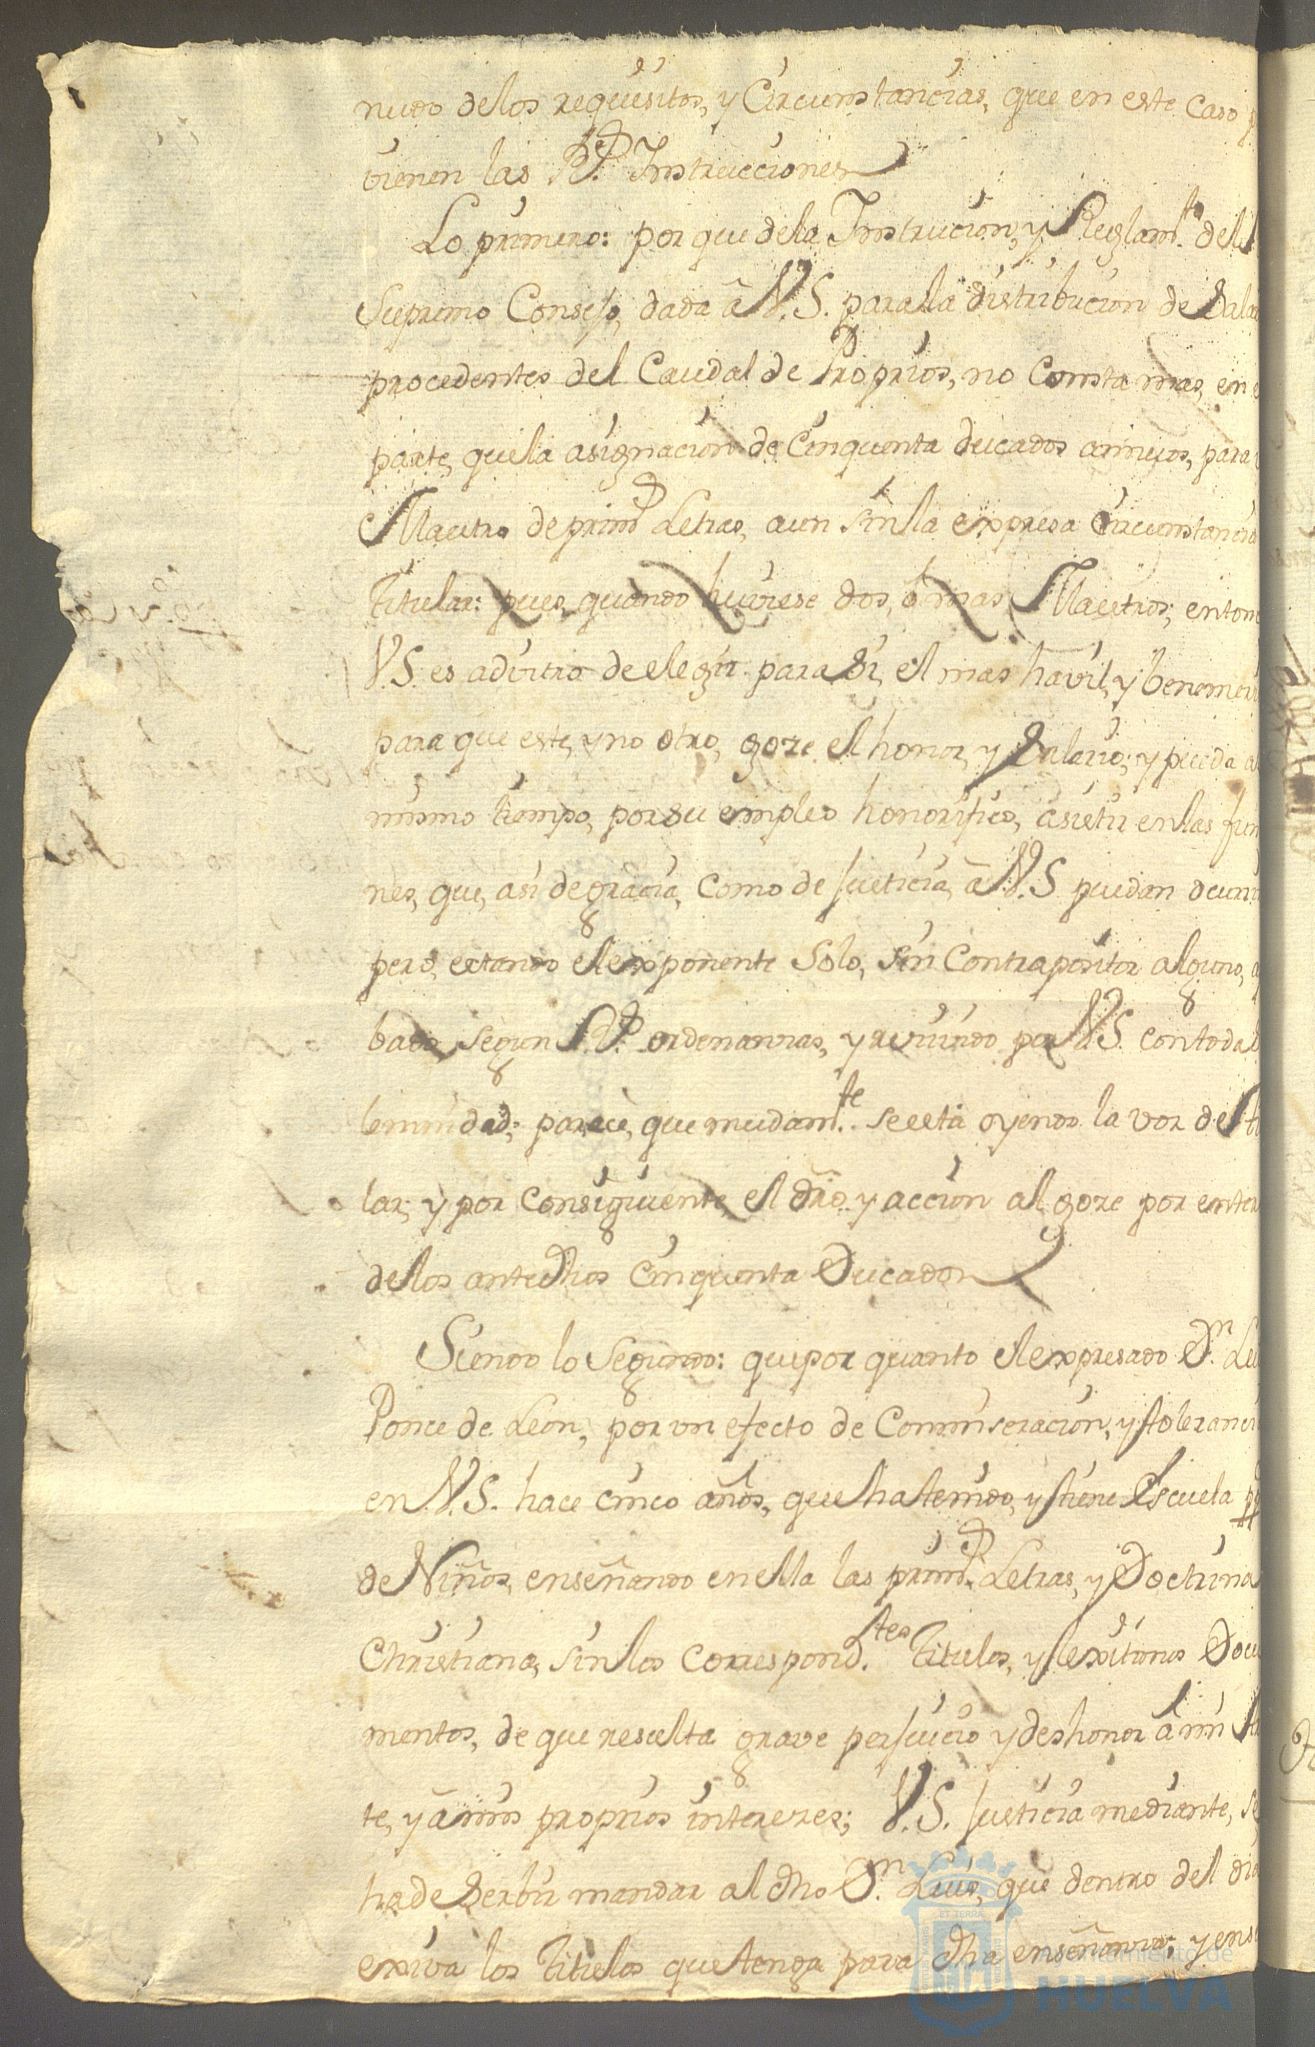 nudo delos requisitos, y Circunstancias, que en este caso p
vienen las R.^s Instrucciones
Lo primero: por que dela Instrucion, y Reglam.^to del
Supremo Consejo, dada â V. S. para la distribucion de Sala
procedentes del Caudal de Proprios, no consta mas, en e
parte, que la asignacion de Cinquenta ducados annuos, para
Maestro de prim.^s Letras, aun sin la expresa Circunstancia
Titular: pues quando huviese dos, ó mas Maestros; enton
V. S. es advitro de elegir para si, el mas havil, y benemeri
para que este, y no otro, goze el honor, y Salario; y pueda a
mismo tiempo, por su empleo honorifico, asistir en las fun
nes, que, asi de gracia, como de Justicia, â V. S puedan ocurri
pero, estando el exponente Solo, sin Contrapositor alguno, a
bado segun R.^s ordenanzas, y recivido por V. S. con toda
lemnidad; parece, que mudam.^te se esta oyendo la voz de Ti
lar, y por consiguiente, el dr̃o. y accion al goze por enter
delos antedhos Cinquenta Ducados
Siendo lo Segundo: que por quanto el expresado D.^n Lui
Ponce de Leon, por un efecto de Comiseracion, y tolerancia
en V. S. hace cinco años, que ha tenido, y tiene Escuela pp
de Niños, enseñando en ella las prim.^s Letras, y Doctrina
Christiana, sin los correspond.^tes Titulos, y lexitimos Docu
mentos, de que resulta grave perjuicio y deshonor â mi
te, y â mis proprios intereses; V. S. Justicia mediante, se
ha de serbir mandar al dho D.^n Luis, que dentro del dia
exiva los Titulos que tenga para dha enseñanza; y ense
ET TERRA
Ayuntamiento de
HUELVA